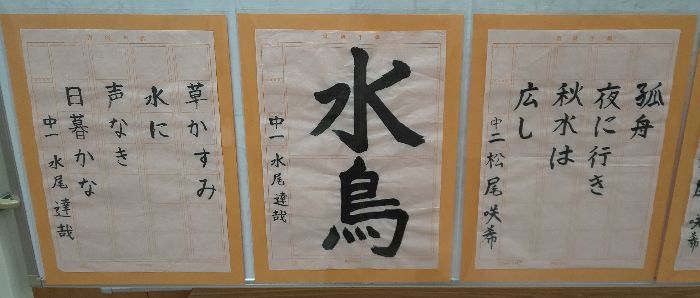 草かすみ
水に
声なき
日暮かな
中一 水尾達哉
水鳥
中一 水尾達哉
孤舟
夜に行き
秋水は
広し
中二 松尾咲希